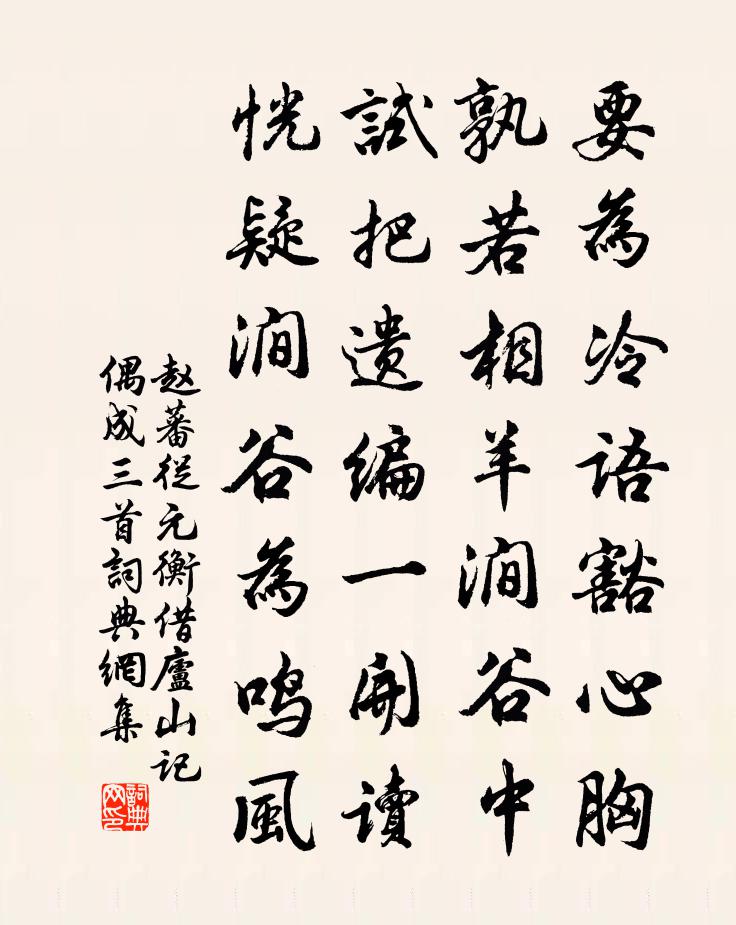 要為冷語豁心胸
孰若相羊澗谷中
試把遗編一開读
恍疑澗谷為鸣風
赵蕃從元衡借廬山记
偶成三首詞典網集
詞典
网印